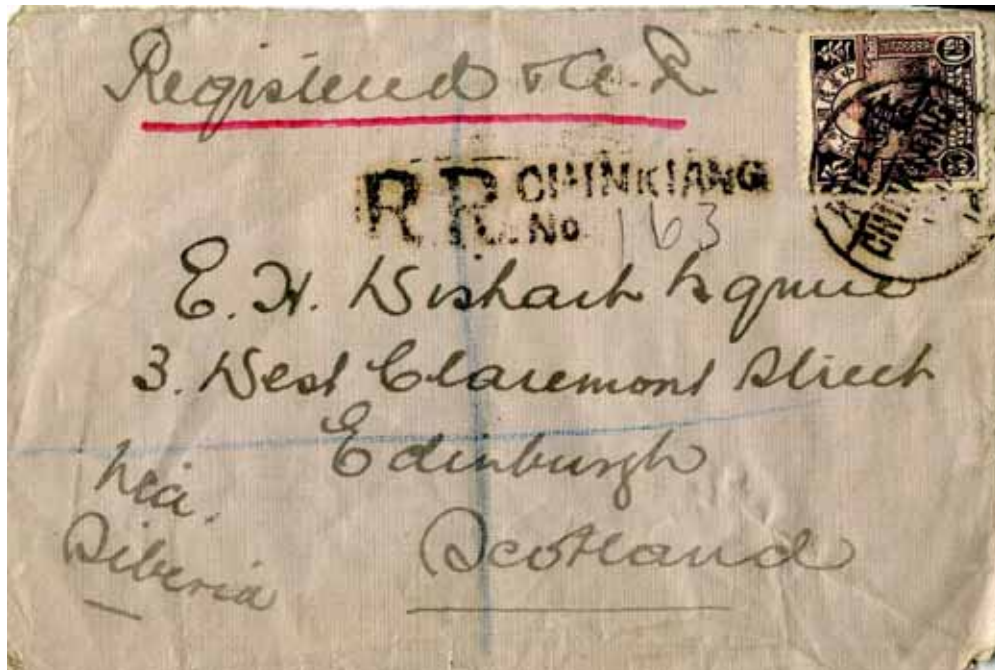 Registered & A.R.
R.R. CHINKIANG
No. 163
E. H. Wishart Esquire
3. West Claremont Street
Edinburgh
Scotland
Via.
Siberia